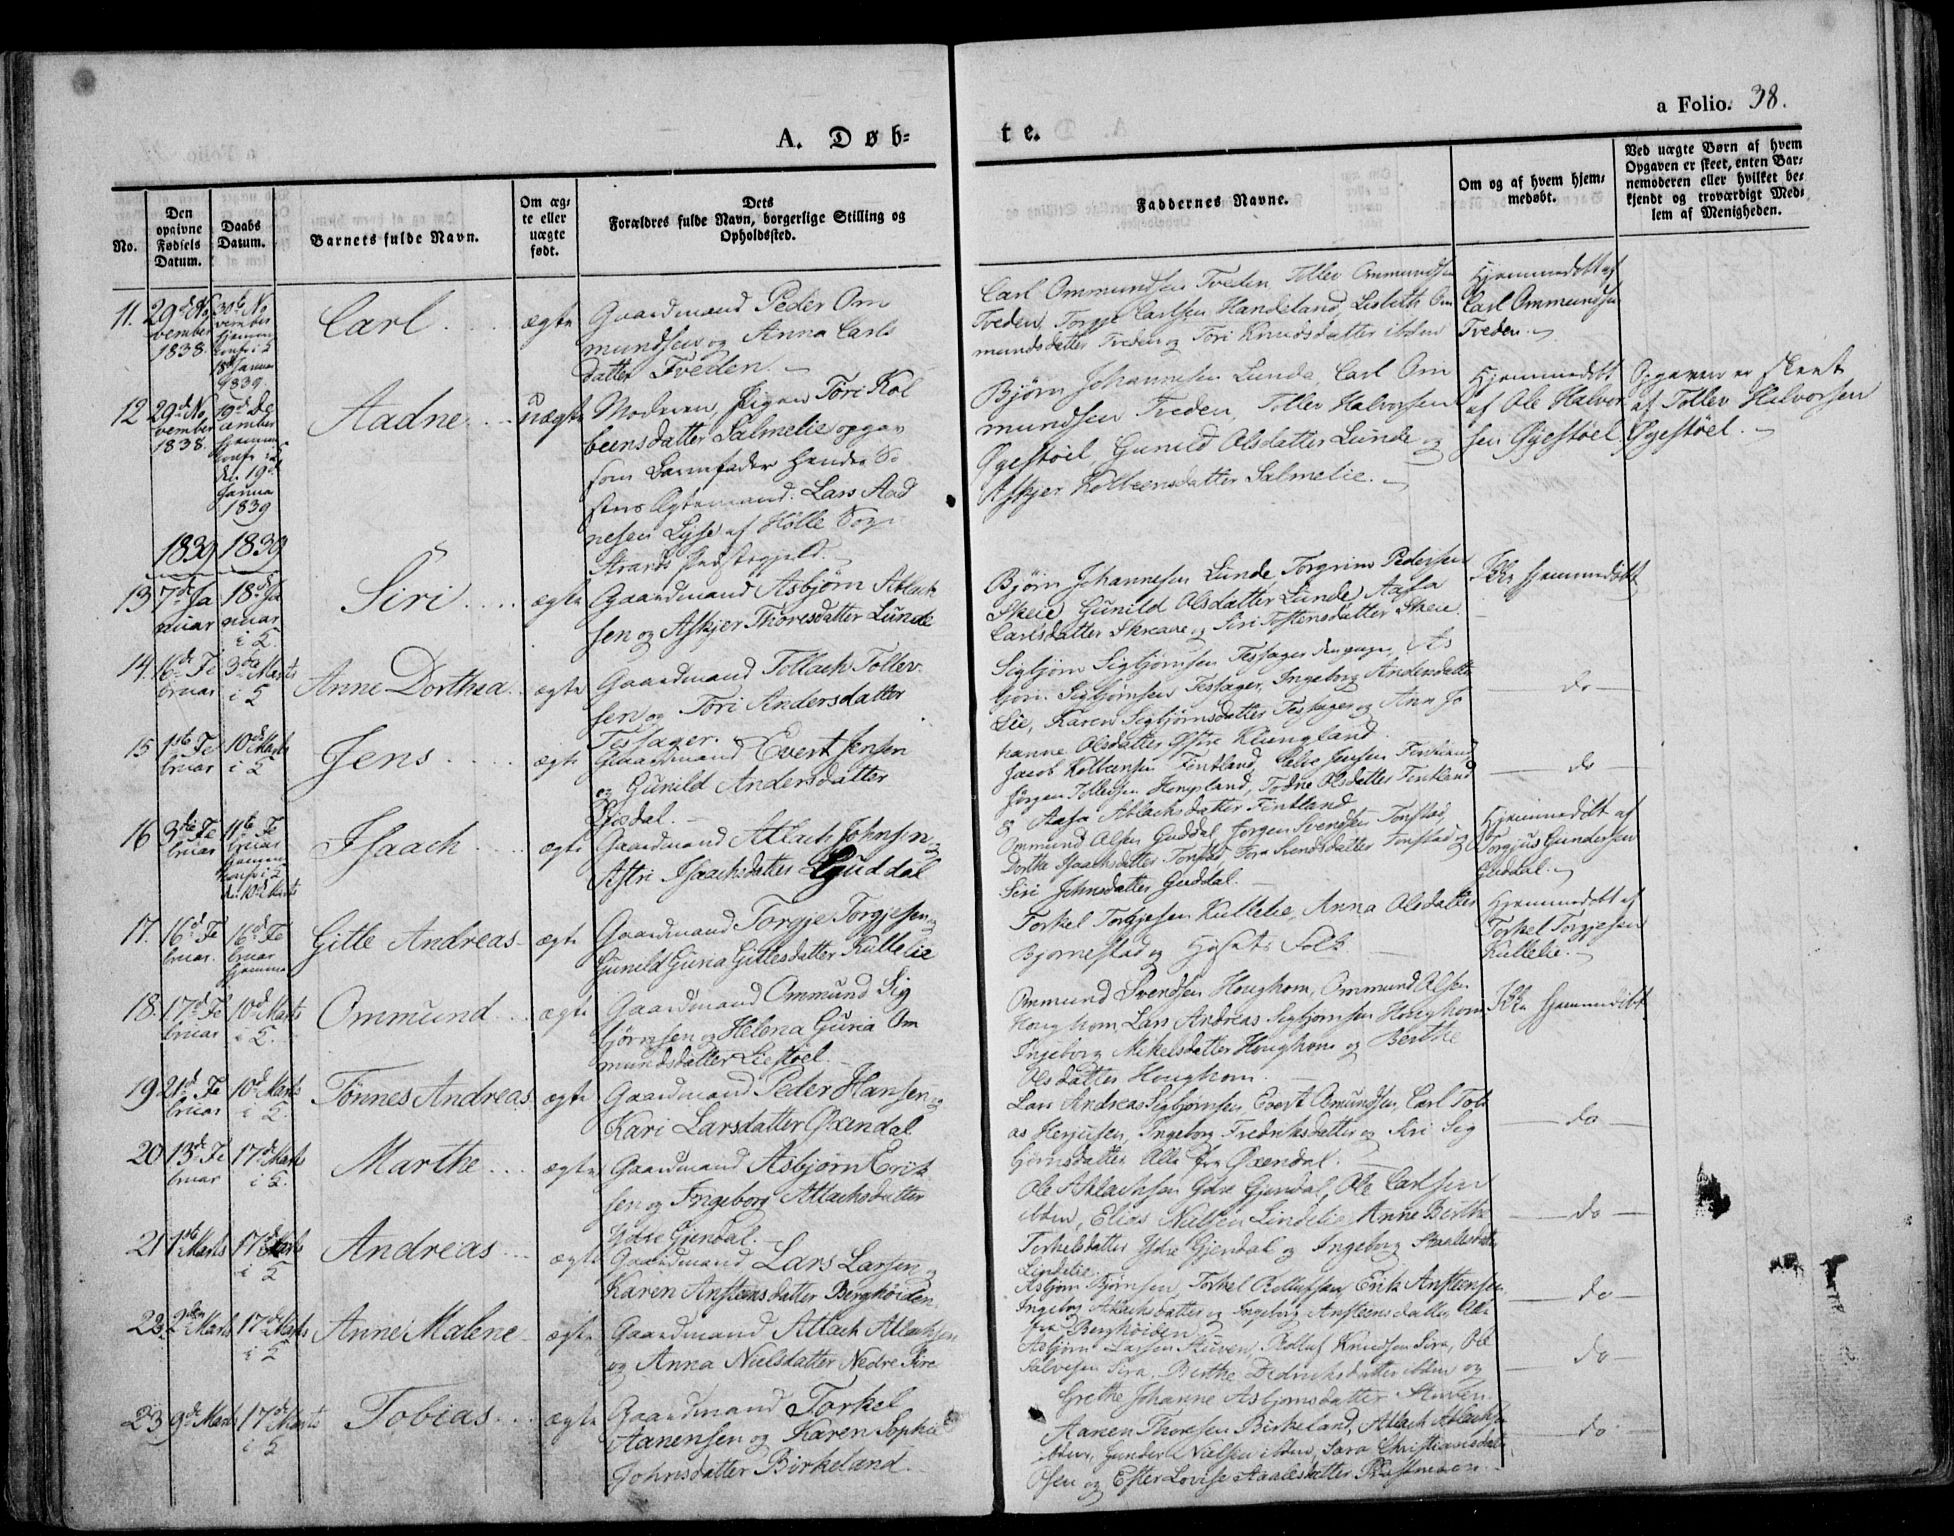 a Folio. 38.
A. Døb-
te.
No.
Den opgivne Fødsels Datum.
Daabs Datum.
Barnets fulde Navn.
Om ægte eller uægte født.
Dets Forældres fulde Navn, borgerlige Stilling og Opholdssted.
Faddernes Navne.
Om og af hvem hjemmedøbt.
Ved uægte Børn af hvem Opgaven er skeet, enten Barnemoderen eller hvilket bekjendt og troværdigt Medlem af Menigheden.
11. 29de No
vember
1838.
30te No
vember
hjemme
18de Janua
1839.
Carl
ægte
Gaardmand Peder Om
mundsen og Anna Carls
datter Tveden.
Carl Ommundsen Tveden, Tollev Ommundsen
Tveden, Torgje Carlsen Handeland, Lisbeth Om
mundsdatter Tveden og Tori Knudsdatter ibden
Hjemmedøbt af
Carl Ommundsen
Tveden.
12 29de No
vember
1838.
19de De
cember
hjemme
d. 19de
Janua
1839
Aadne
uægte
Moderen, Pigen Tori Kol
beensdatter Salmelie opgav
som Barnefader hendes Sø
sters Ægtemand. Lars Aad
nesen Lyse af Hølle Sogn
Strands Præstegjeld.
Bjørn Johannesen Lunde, Carl Om
mundsen Tveden, Tollev Halvorsen
Øgestøel, Gunild Olsdatter Lunde og
Askjer Kolbeensdatter Salmelie.
Hjemmedøbt
af Ole Halvor
sen Øgestøel
Opgaven er skeet
af Tollev Halvorsen
Øgestøel.
1839 1839
13 7de Ja
nuar
18de Ja
nuar
i K.
Siri
ægte
Gaardmand Asbjørn Atlack
sen og Askjer Thoresdatter Lunde
Bjørn Johannesen Lunde, Torgrim Pedersen
Skeie, Gunild Olsdatter Lunde, Aasa
Carlsdatter Skreaae og Siri Tostensdatter Skeie.
Ikke hjemmedøbt
14. 16de Fe
bruar
3die Marts
i K
Anne Dorthea
ægte
Gaardmand Tollach Tollev
sen og Tori Andersdatter
Tesager.
Sigbjørn Sigbjørnsen Tesager, As
bjørn Sigbjørnsen Tesager, Ingeborg Andersdatter
Lie, Karen Sigbjørnsdatter Tesager og Anne Jo
hanne Olsdatter Østre Kлungland.
do
15 1ste Fe
bruar
10de Marts
i K
Jens
ægte
Gaardmand Evert Jensen
og Gunild Andersdatter
Jacob Kolbensen Fintland, Salve Jensen Fintland
Jørgen Tollevsen Hompland, Todne Olsdatter Fintland
og Aasa Atlachsdatter Fintland
do
16 3die Fe
bruar
11te Fe
bruar
hjemme
d. 10de Marts
Isaach
ægte
Gaardmand Atlach Johnsen og
Astri Isaachsdatter Guddal
Ommund Olsen Guddal, Jørgen Svendsen Tonstad,
Dorthe Isaachsdatter Tonstad, Tora Svendsdatter Tonstad og
Siri Johnsdatter Guddal.
Hjemmedøbt af
Torgius Gundersen
Guddal.
17. 16de Fe
bruar.
16de Fe
bruar
hjemme
Gitle Andreas
ægte
Gaardmand Torgje Torgjesen og
Gunild Guria Gitlesdatter Kullelie
Torkel Torgjesen Kullelie, Anna Olsdatter
Bjørnestad og Husets Folk
Hjemmedøbt af
Torkel Torgjesen
Kullelie.
18. 17de Fe
bruar
10de Marts
i K.
Ommund
ægte
Gaardmand Ommund Sig
bjørnsen og Helena Guria Om
mundsdatter Liestøel.
Ommund Svendsen Houghom, Ommund Olsen
Houghom, Lars Andreas Sigbjørnsen Houghom
Ingeborg Mikelsdatter Houghom og Berthe
Olsdatter Houghom.
Ikke hjemmedøbt
19 21de Fe
bruar
10de Marts
i K
Tønnes Andreas
ægte
Gaardmand Peder Hansen og
Kari Larsdatter Øxendal
Lars Andreas Sigbjørnsen, Evert Omundsen, Carl Tob
as Herjusen, Ingeborg Fredriksdatter og Siri Sig
bjørnsdatter Alle fra Øxendal.
do
20 13de Fe
bruar
17de Marts
i K.
Marthe
ægte
Gaardmand Asbjørn Erik
sen og Ingeborg Atlachsdatter
Ydre Gjendal.
Ole Aslachsen Ydre Gjendal, Ole Carlsen
ibden, Elias Nielsen Lindelie, Anne Berthe
Torkelsdatter Ydre Gjendal og Ingeborg Staalesdatter
Lindelie.
do
21 1ste Marts
17de Marts
i K
Andreas
ægte
Gaardmand Lars Larsen og
Karen Anstensdatter Berghøiden
Asbjørn Bjørnsen, Torkel Rolufsen, Erik Anstensen,
Ingeborg Atlachsdatter og Ingeborg Anstensdatter, Alle
fra Berghøiden
do
22. 2den Marts
17de Marts
i K
Anne Malene
ægte
Gaardmand Atlach Atlachsen
og Anna Nielsdatter Nedre Sire
Asbjørn Larsen Stuven, Roluf Knudsen Sira, Ole
Salvesen Sira, Berthe Didriksdatter ibden og
Grethe Johanne Asbjørnsdatter Stuven.
do
23 9de Marts
17de Marts
i K
Tobias
ægte
Gaardmand Torkel
Aanensen og Karen Sophie
Johnsdatter Birkeland.
Aanen Thoresen Birkeland, Atlach Atlachsen
ibden, Gunder Nielsen ibden, Sara Christiansdatter
Osen og Ester Lovise Aaalesdatter
do